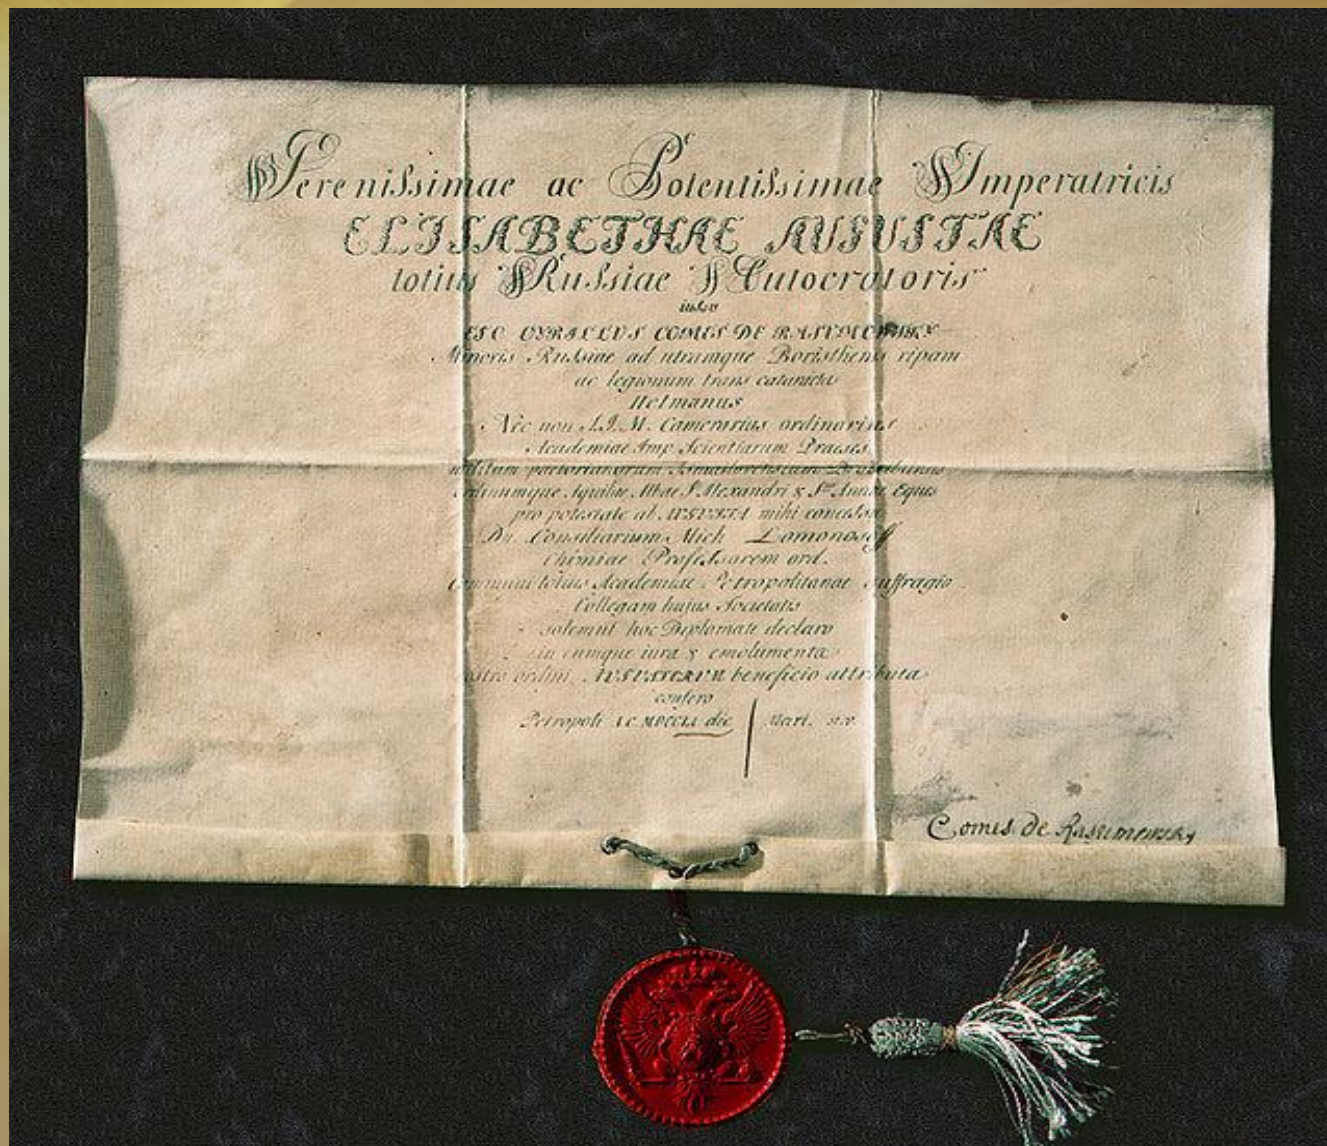 Serenissimae ac Potentissimae Imperatricis
ELISABETHAE AUGUSTAE
totius Russiae Autocratoris
iussu
EGO CYRILLUS COMES DE RASUMOWSKY
Minoris Russiae ad utramque Boristhenis ripam
ac legionum trans cataractas
Hetmanus
Nec non S.I.M. Camerarius ordinarius
Academiae Imp. Scientiarum Praeses
ordinumque Aquilae Albae S. Alexandri & S. Annae Eques
pro potestate ab AUGUSTA mihi concessa
Dn. Consiliarium Mich Lomonosoff
Chimiae Professorem ord.
communi totius Academiae Petropolitanae suffragio
Collegam hujus Societatis
solemni hoc Diplomate declaro
in eumque iura & emolumenta
nostro ordini AUGUSTARUM beneficio attributa
confero
Petropoli die Mart. st. v.
Comes de Rasumowsky